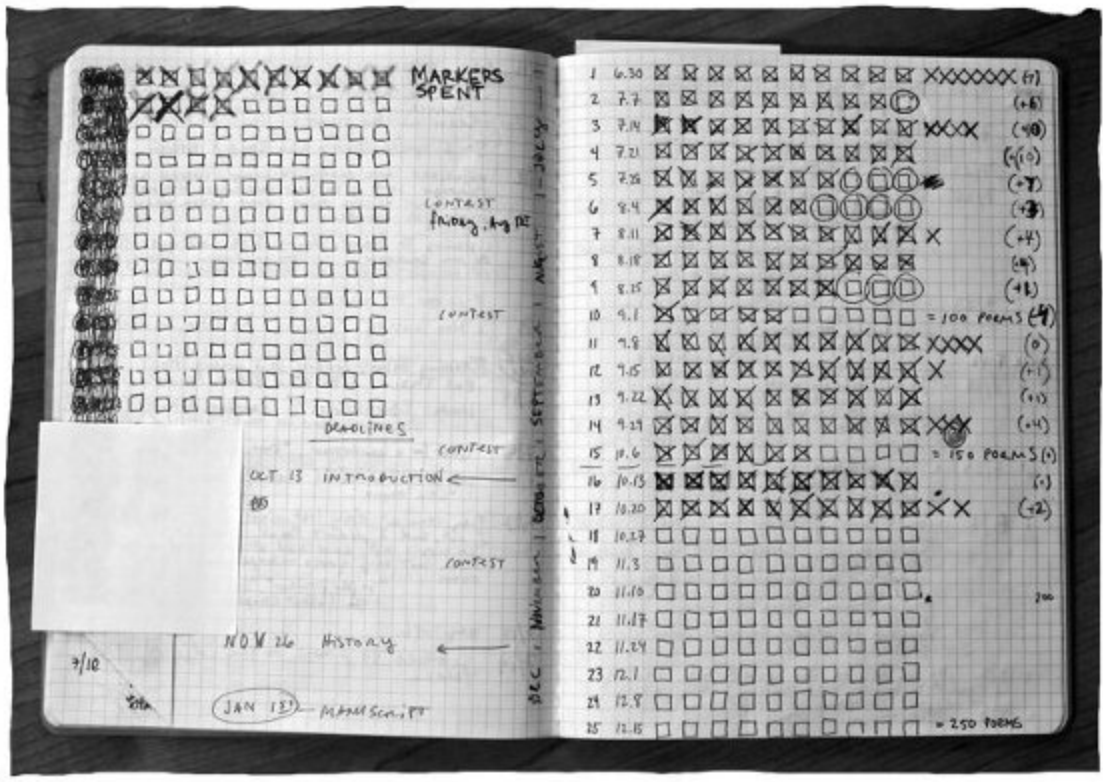 MARKERS
SPENT
CONTEST
FRIDAY, AUG
CONTEST
DEADLINES
CONTEST
OCT 13 INTRODUCTION
CONTEST
NOV 26 HISTORY
JAN 15 MANUSCRIPT
7/10
DEC | NOVEMBER | OCTOBER | SEPTEMBER | AUGUST | JULY
1 6.30 (-7)
2 7.7 (+6)
3 7.14
4 7.21 (+10)
5 7.28 (+7)
6 8.4 (+3)
7 8.11 (+4)
8 8.18 (+4)
9 8.25 (+1)
10 9.1 = 100 POEMS (-4)
11 9.8 (0)
12 9.15 (+1)
13 9.22 (+1)
14 9.29 (+4)
15 10.6 = 150 POEMS (0)
16 10.13
17 10.20 (+2)
18 10.27
19 11.3
20 11.10 200
21 11.17
22 11.24
23 12.1
24 12.8
25 12.15 = 250 POEMS